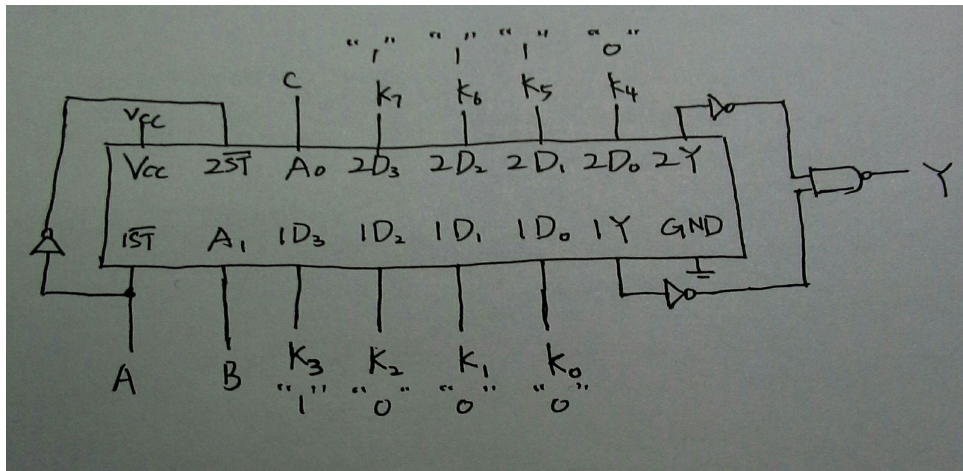 "1" "1" "1" "0"
C K₇ K₆ K₅ K₄
Vcc
Vcc 2S̅T̅ A₀ 2D₃ 2D₂ 2D₁ 2D₀ 2Y
Y
1S̅T̅ A₁ 1D₃ 1D₂ 1D₁ 1D₀ 1Y GND
A B K₃ K₂ K₁ K₀
"1" "0" "0" "0"